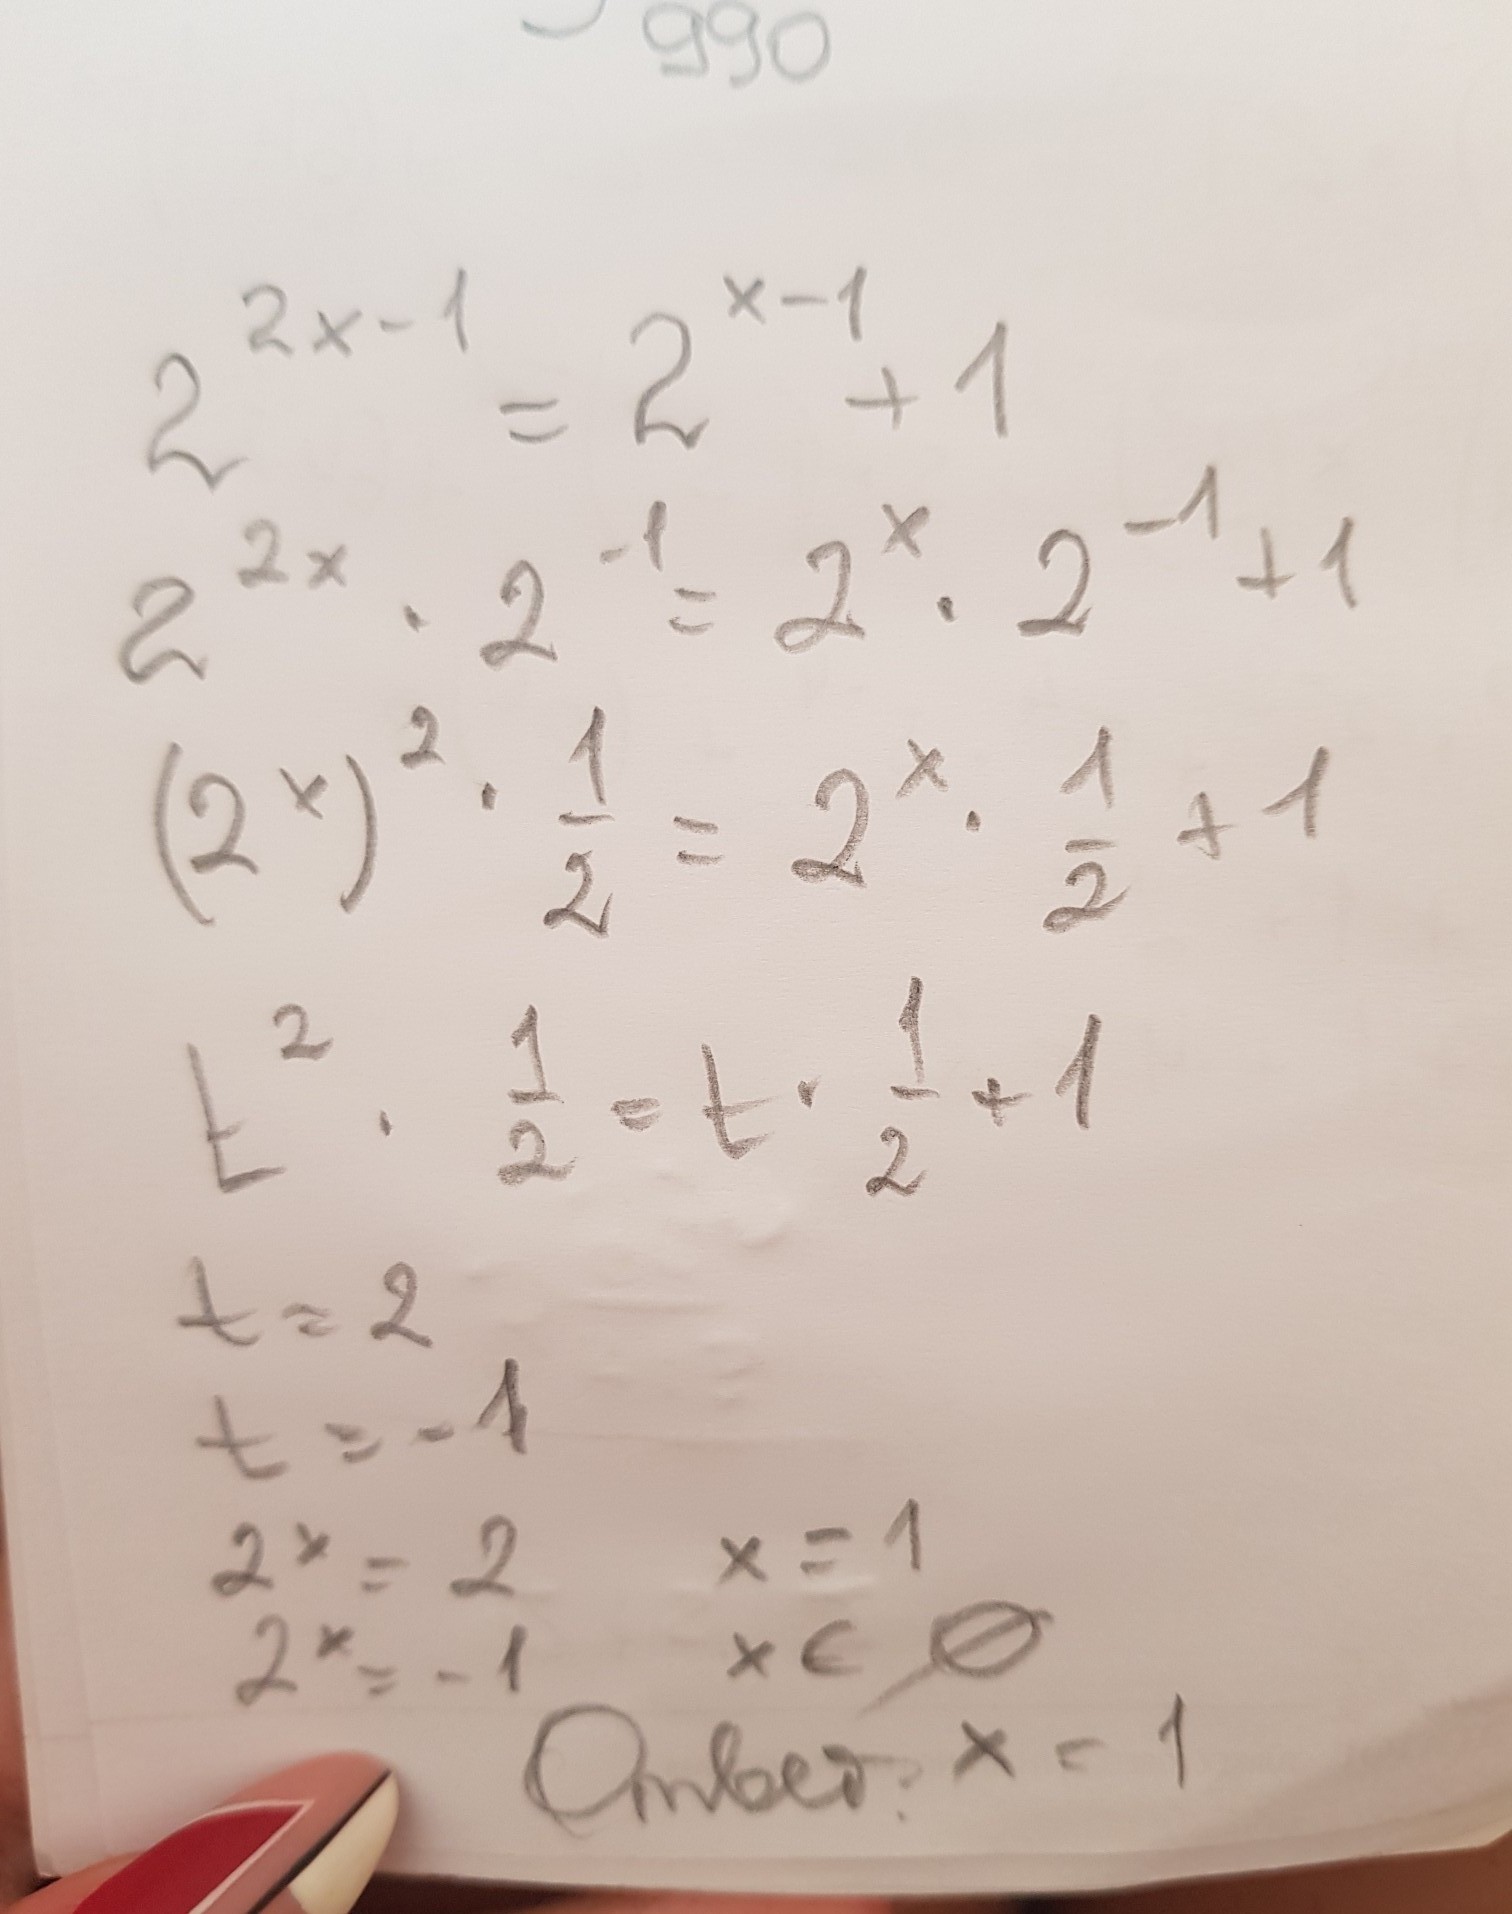 990
2^{2x-1} = 2^{x-1} + 1
2^{2x} · 2^{-1} = 2^x · 2^{-1} + 1
(2^x)^2 · 1/2 = 2^x · 1/2 + 1
t^2 · 1/2 = t · 1/2 + 1
t = 2
t = -1
2^x = 2 x = 1
2^x = -1 x ∈ ∅
Ответ: x = 1